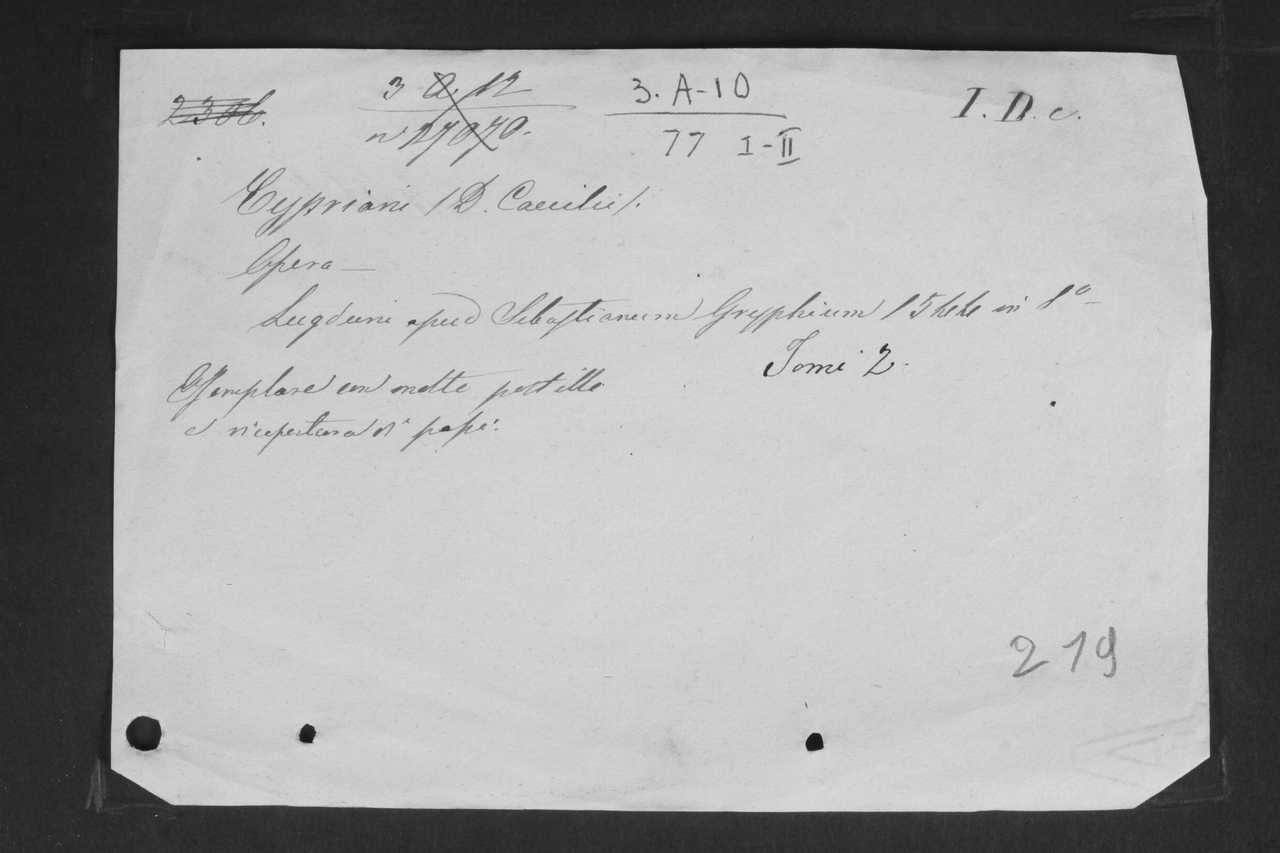 3 A. 12
n 27070.
3. A-10
77 I-II
I. D. c.
Cypriani (D. Caecilii).
Opera —
Lugduni apud Sebastianum Gryphium 1544 in 8°
Tomi 2.
Esemplare con molte postille
e ricopertura di
219